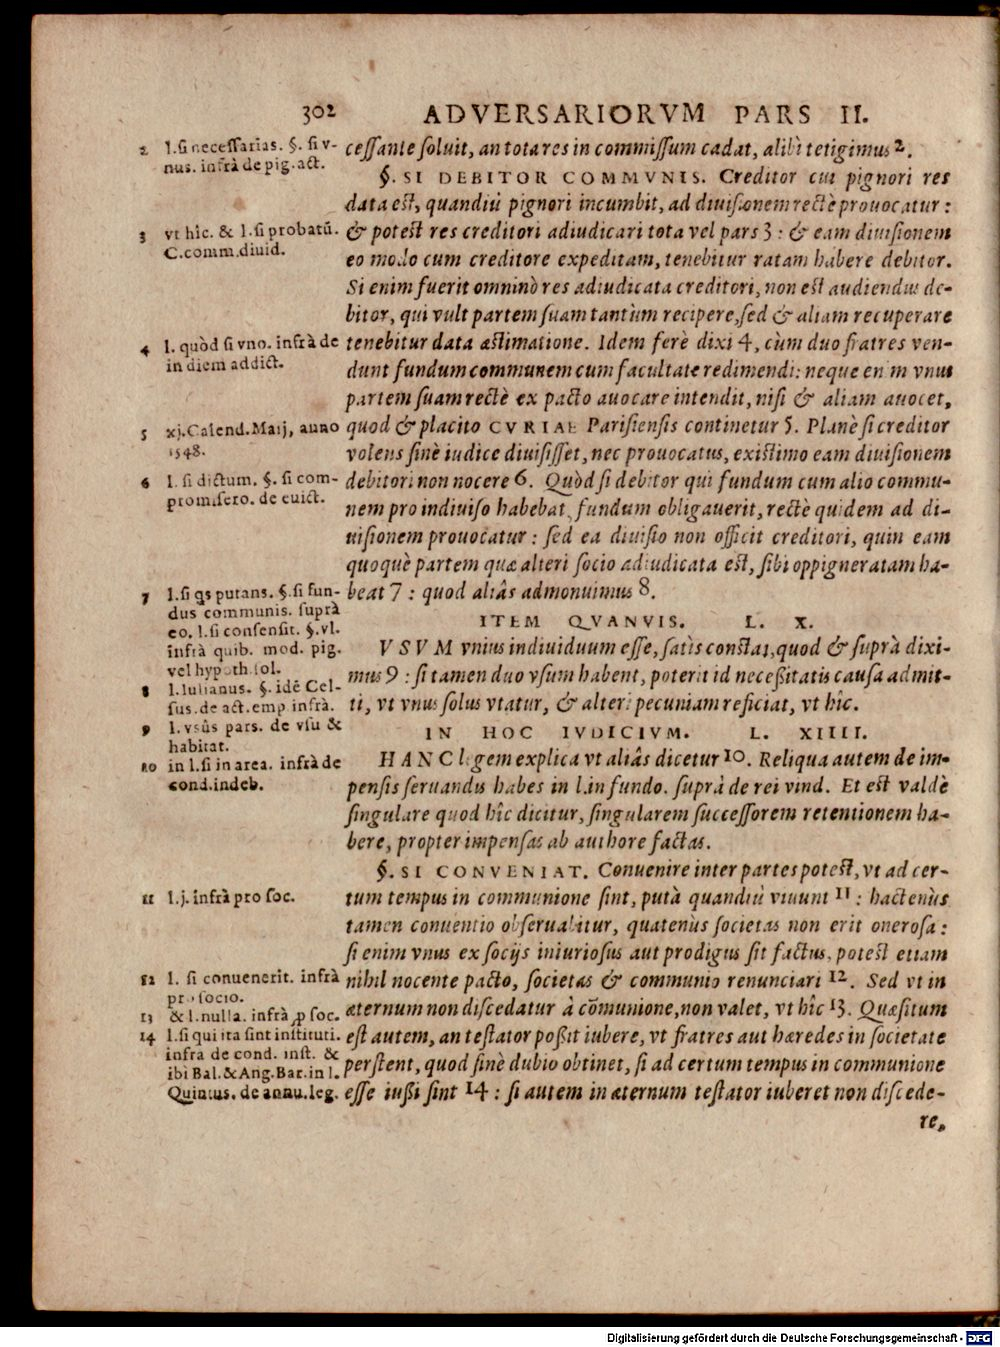 302 ADVERSARIORVM PARS II.
ceſſante ſoluit, an tota res in commiſſum cadat, alibi tetigimus 2.
§. SI DEBITOR COMMVNIS. Creditor cui pignori res
data eſt, quandiù pignori incumbit, ad diuiſionem rectè prouocatur:
& poteſt res creditori adiudicari tota vel pars 3: & eam diuiſionem
eo modo cum creditore expeditam, tenebitur ratam habere debitor.
Si enim fuerit omninò res adiudicata creditori, non eſt audiendus de-
bitor, qui vult partem ſuam tantùm recipere, ſed & aliam recuperare
tenebitur data æſtimatione. Idem ferè dixi 4, cùm duo fratres ven-
dunt fundum communem cum facultate redimendi: neque enim vnus
partem ſuam rectè ex pacto auocare intendit, niſi & aliam auocet,
quod & placito CVRIAE Pariſienſis continetur 5. Planè ſi creditor
volens ſinè iudice diuiſiſſet, nec prouocatus, exiſtimo eam diuiſionem
debitori non nocere 6. Quòd ſi debitor qui fundum cum alio commu-
nem pro indiuiſo habebat, fundum obligauerit, rectè quidem ad di-
uiſionem prouocatur: ſed ea diuiſio non officit creditori, quin eam
quoquè partem quæ alteri ſocio adiudicata eſt, ſibi oppigneratam ha-
beat 7: quod aliâs admonuimus 8.
ITEM QVANVIS. L. X.
VSVM vnius indiuiduum eſſe, ſatìs conſtat, quod & ſuprà dixi-
mus 9: ſi tamen duo vſum habent, poterit id neceßitatis cauſa admit-
ti, vt vnus ſolus vtatur, & alteri pecuniam reficiat, vt hîc.
IN HOC IVDICIVM. L. XIIII.
HANC legem explica vt aliâs dicetur 10. Reliqua autem de im-
penſis ſeruandis habes in l. in fundo. ſuprà de rei vind. Et eſt valdè
ſingulare quod hîc dicitur, ſingularem ſucceſſorem retentionem ha-
bere, propter impenſas ab authore factas.
§. SI CONVENIAT. Conuenire inter partes poteſt, vt ad cer-
tum tempus in communione ſint, putà quandiù viuunt 11: hactenùs
tamen conuentio obſeruabitur, quatenùs ſocietas non erit oneroſa:
ſi enim vnus ex ſocijs iniurioſus aut prodigus ſit factus, poteſt etiam
nihil nocente pacto, ſocietas & communio renunciari 12. Sed vt in
æternum non diſcedatur à cõmunione, non valet, vt hîc 13. Quæſitum
eſt autem, an teſtator poßit iubere, vt fratres aut hæredes in ſocietate
perſtent, quod ſinè dubio obtinet, ſi ad certum tempus in communione
eſſe iußi ſint 14: ſi autem in æternum teſtator iuberet non diſcede-
re,
2 l. ſi neceſſarias. §. ſi v-
nus. infrà de pig. act.
3 vt hîc. & l. ſi probatũ.
C. comm. diuid.
4 l. quòd ſi vno. infrà de
in diem addict.
5 xj. Calend. Maij, anno
1548.
6 l. ſi dictum. §. ſi com-
promiſero. de euict.
7 l. ſi qs putans. §. ſi fun-
dus communis. ſuprà
eo. l. ſi conſenſit. §. vl.
infrà quib. mod. pig.
vel hypoth. ſol.
8 l. Iulianus. §. idẽ Cel-
ſus. de act. emp infrà.
9 l. vsûs pars. de vſu &
habitat.
10 in l. ſi in area. infrà de
cond. indeb.
11 l. j. infrà pro ſoc.
12 l. ſi conuenerit. infrà
pro ſocio.
13 & l. nulla. infrà ꝓ ſoc.
14 l. ſi qui ita ſint inſtituti.
infra de cond. inſt. &
ibi Bal. & Ang. Bar. in l.
Quintus. de annu. leg.
Digitalisierung gefördert durch die Deutsche Forschungsgemeinschaft - DFG